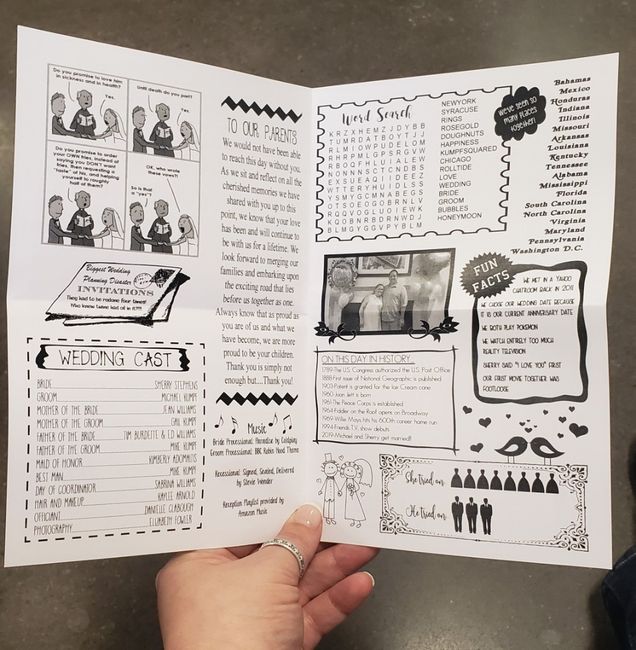 Do you promise to love him
in sickness and in health?
Yes.
Until death do you part?
Yes.
Do you promise to order
your OWN fries, instead of
saying you DON'T want
fries, then requesting a
"taste" of his, and helping
yourself to roughly
half of them?
OK, who
wrote these
vows?
So is that
a "yes"?
Biggest Wedding
Planning Disaster
INVITATIONS
They had to be redone four times!
WEDDING CAST
BRIDE SHERRY STEPHENS
GROOM MICHAEL KUMPF
MOTHER OF THE BRIDE JEAN WILLIAMS
MOTHER OF THE GROOM GAIL KUMPF
FATHER OF THE BRIDE TIM BURDETTE & ED WILLIAMS
FATHER OF THE GROOM MIKE KUMPF
MAID OF HONOR KIMBERLY ADOMAITIS
BEST MAN MIKE KUMPF
DAY OF COORDINATOR SABRINA WILLIAMS
HAIR AND MAKEUP KAYLEE ARNOLD
OFFICIANT DANIELLE CLABOUGH
PHOTOGRAPHY ELIZABETH FOWLER
TO OUR PARENTS
We would not have been able
to reach this day without you.
As we sit and reflect on all the
cherished memories we have
shared with you up to this
point, we know that your love
has been and will continue to
be with us for a lifetime. We
look forward to merging our
families and embarking upon
the exciting road that lies
before us together as one.
Always know that as proud as
you are of us and what we
have become, we are more
proud to be your children.
Thank you is simply not
enough but....Thank you!
Music
Bride Processional: Paradise by Coldplay
Groom Processional: BBC Robin Hood Theme
Recessional: Signed, Sealed, Delivered
by Stevie Wonder
Reception Playlist provided by
Amazon Music
Word Search
KRZXHEMZJDYBB
TUMRDATBOYTJJ
RLMIOWPUDELOM
HRHRPMLGPSRGVW
RBOQFHLUIALEW
NONNNSCTCNDBS
EXSUEAQIIDEEZ
WTTERYHUIDLSS
YSMYGCMNABEGS
OTSOEOGOBRNLV
RQQVOGLUOIEWK
KQOBNRBDRNWDJ
BLMGYGGVPYBLM
NEWYORK
SYRACUSE
RINGS
ROSEGOLD
DOUGHNUTS
HAPPINESS
KUMPFSQUARED
CHICAGO
ROLLTIDE
LOVE
WEDDING
BRIDE
GROOM
BUBBLES
HONEYMOON
We've seen so
many places
together!
Bahamas
Mexico
Honduras
Indiana
Illinois
Missouri
Arkansas
Louisiana
Kentucky
Tennessee
Alabama
Mississippi
Florida
South Carolina
North Carolina
Virginia
Maryland
Pennsylvania
Washington D.C.
FUN
FACTS
WE MET IN A YAHOO
CHATROOM BACK IN 2011
WE CHOSE OUR WEDDING DATE BECAUSE
IT IS OUR CURRENT ANNIVERSARY DATE
WE BOTH PLAY POKEMON
WE WATCH ENTIRELY TOO MUCH
REALITY TELEVISION
SHERRY SAID "I LOVE YOU" FIRST
OUR FIRST MOVIE TOGETHER WAS
FOOTLOOSE
ON THIS DAY IN HISTORY...
1789-The U.S. Congress authorized the U.S. Post Office
1888-First issue of National Geographic is published
1903-Patent is granted for the Ice Cream Cone
1960-Joan Jett is born
1961-The Peace Corps is established
1964-Fiddler on the Roof opens on Broadway
1969-Willie Mays hits his 600th career home run
1994-Friends T.V. show debuts
2019-Michael and Sherry get married!!
She tried on
He tried on